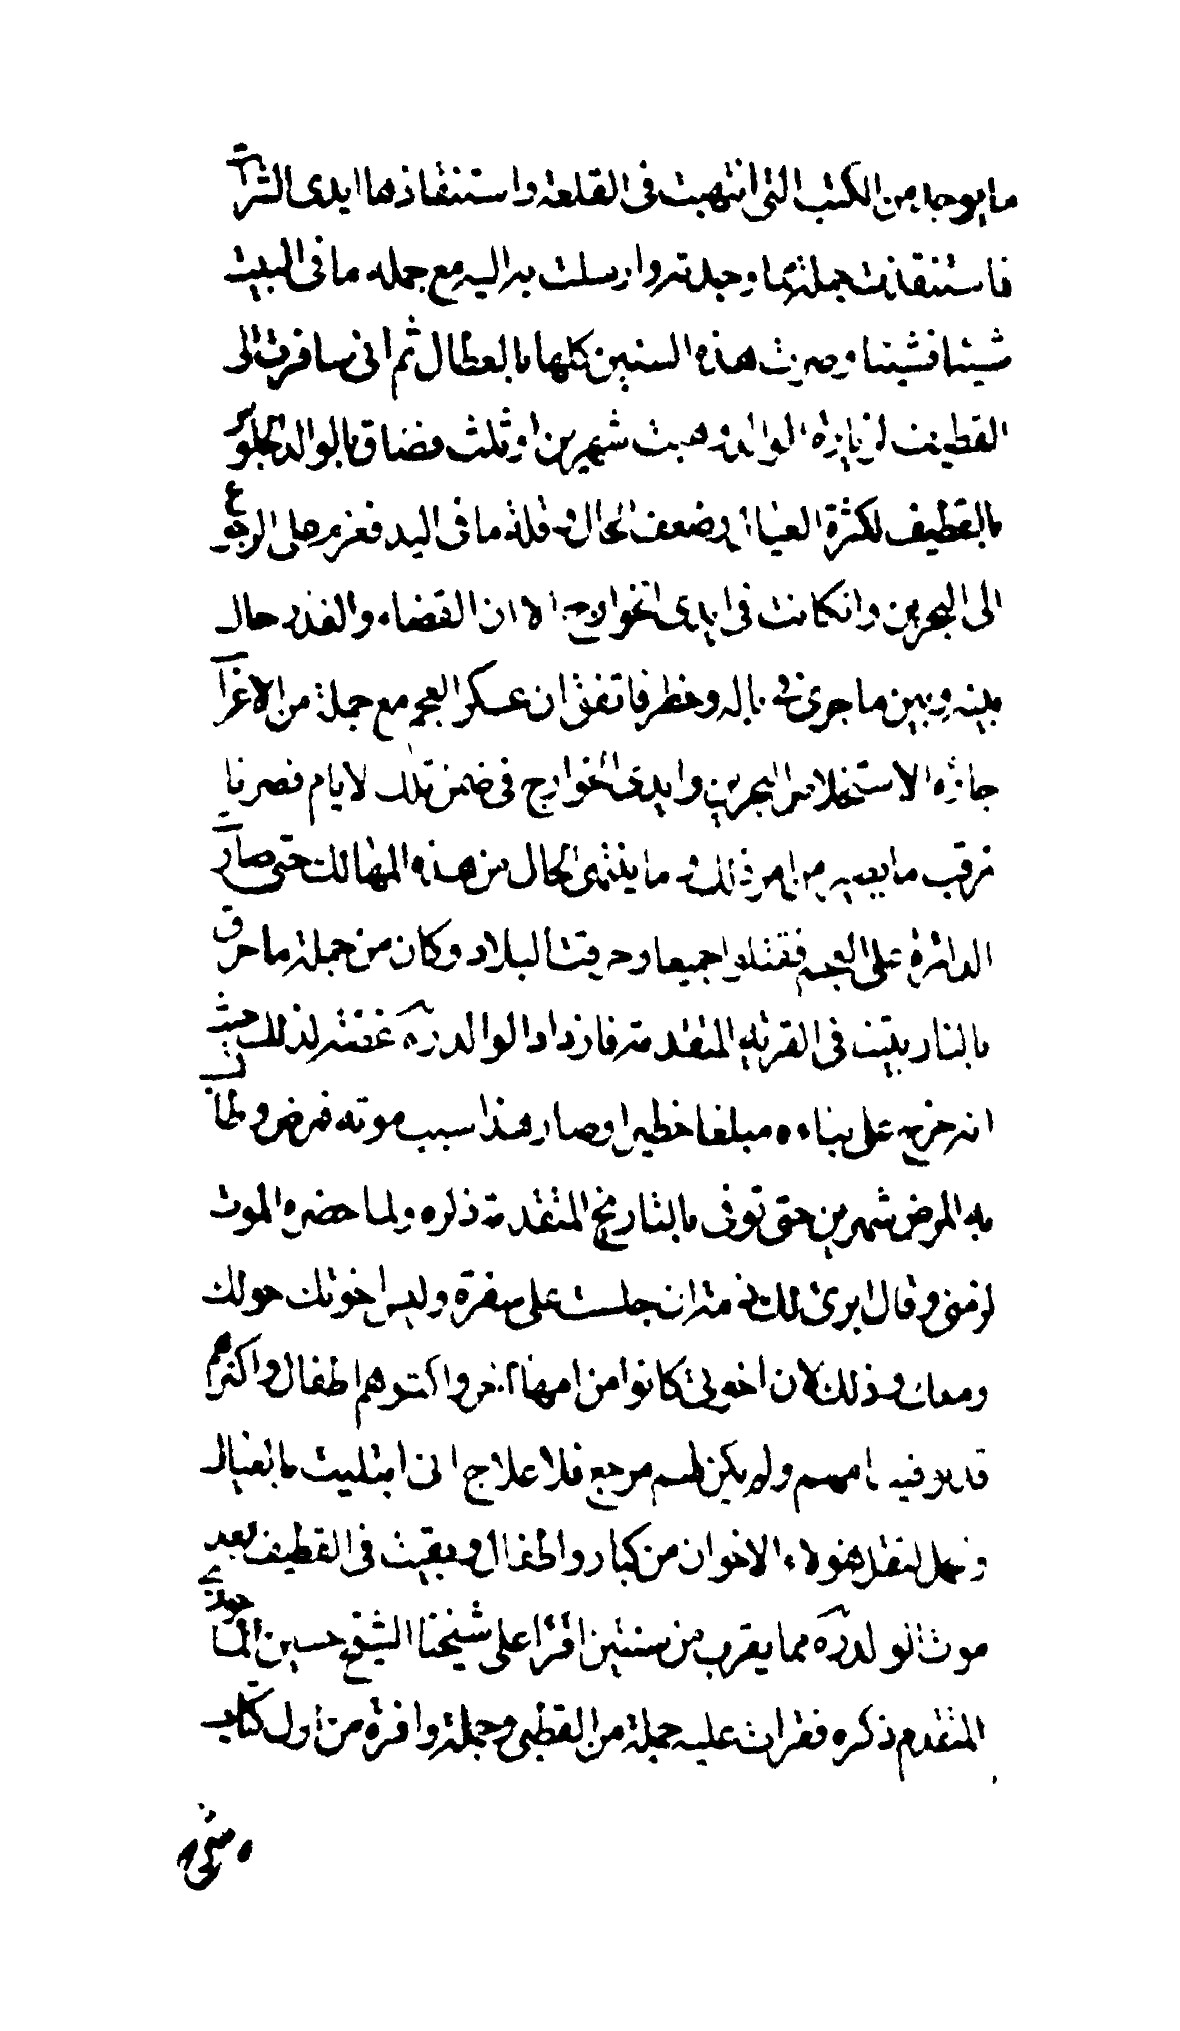 ما يوجد من الكتب التي انتهبت في القلعة واستنقاذها ايدى الشراة
فاستنقذت جملة مما وجدته وارسلت به اليه مع جمله ما في البيت
شيئا فشيئا ومرت هذه السنين كلها بالعطال ثم انى سافرت الى
القطيف لزيارة الوالد وبقيت شهرين او ثلث فضاق بالوالد الجلوس
بالقطيف لكثرة العيال وضعف الحال وقلة ما في اليد فعزم على الرجوع
الى البحرين وانكانت في ايدى الخوارج الا ان القضاء والقدر حال
بينه وبين ما جرى في باله وخطر فاتفق ان عسكر العجم مع جملة من الاعراب
جاؤه الاستخلاص البحرين وايدى الخوارج في ضمن تلك لايام فصرنا
نرقب ما يصير من امر ذلك وما ينتهى الحال من هذه المهالك حتى صارت
الدائرة على العجم فقتلوا جميعا وحرقت البلاد وكان من جملة ما حرق
بالنار بيتنا في القرية المتقدمة فازداد الوالد ره غصته لذلك حيث
انه خرج على بناءه مبلغا خطيرا وصار هذا سبب موته فمرض وطال
به المرض شهرين حتى توفى بالتاريخ المتقدمة ذكره ولما حضره الموت
لزمنى وقال ابرئ لك ذمته ان جلست على سفرة وليس اخوتك حولك
ومعك وذلك لان اخوتي كانوا من امهات اخر واكثرهم اطفال واكثرهم
قد توفيت امهم ولم يكن لهم مرجع فلا علاج انى ابتليت بالعيال
وتحمل لثقل هؤلاء الاخوان من كبار واطفال وبقيت في القطيف بعد
موت الوالد ره مما يقرب من سنتين اقرأ على شيخنا الشيخ حسين الماحوزي
المتقدم ذكره فقرات عليه جملة من القطبى وجملة وافرة من اول كتاب